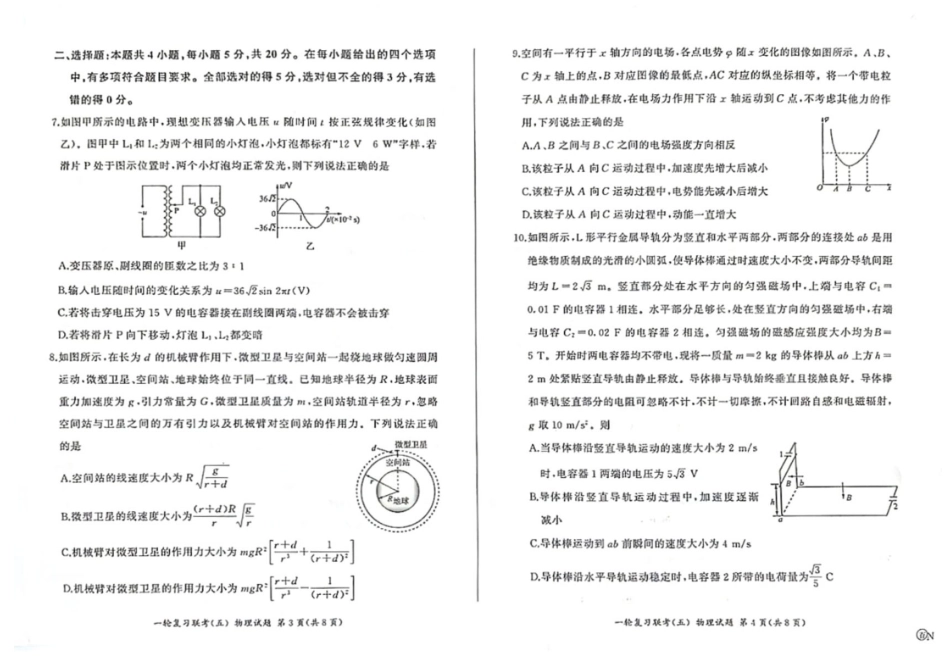 二、选择题:本题共 4 小题,每小题 5 分,共 20 分。在每小题给出的四个选项
中,有多项符合题目要求。全部选对的得 5 分,选对但不全的得 3 分,有选
错的得 0 分。
7.如图甲所示的电路中,理想变压器输入电压 u 随时间 t 按正弦规律变化(如图
乙)。图甲中 L₁和 L₂为两个相同的小灯泡,小灯泡都标有"12 V 6 W"字样,若
滑片 P 处于图示位置时,两个小灯泡均正常发光,则下列说法正确的是
~u
P
L₁
L₂
甲
u/V
36√2
0
-36√2
1
2
t/(×10⁻²s)
乙
A.变压器原、副线圈的匝数之比为 3∶1
B.输入电压随时间的变化关系为 u=36√2 sin 2πt(V)
C.若将击穿电压为 15 V 的电容器接在副线圈两端,电容器不会被击穿
D.若将滑片 P 向下移动,灯泡 L₁、L₂都变暗
8.如图所示,在长为 d 的机械臂作用下,微型卫星与空间站一起绕地球做匀速圆周
运动,微型卫星、空间站、地球始终位于同一直线。已知地球半径为 R,地球表面
重力加速度为 g,引力常量为 G,微型卫星质量为 m,空间站轨道半径为 r,忽略
空间站与卫星之间的万有引力以及机械臂对空间站的作用力。下列说法正确
的是
d
微型卫星
空间站
r
R
地球
A.空间站的线速度大小为 R√(g/(r+d))
B.微型卫星的线速度大小为 (r+d)R/r √(g/r)
C.机械臂对微型卫星的作用力大小为 mgR²[(r+d)/r³+1/(r+d)²]
D.机械臂对微型卫星的作用力大小为 mgR²[(r+d)/r³-1/(r+d)²]
一轮复习联考(五) 物理试题 第 3 页(共 8 页)
9.空间有一平行于 x 轴方向的电场,各点电势 φ 随 x 变化的图像如图所示。A、B、
C 为 x 轴上的点,B 对应图像的最低点,AC 对应的纵坐标相等。将一个带电粒
子从 A 点由静止释放,在电场力作用下沿 x 轴运动到 C 点,不考虑其他力的作
用,下列说法正确的是
A.A、B 之间与 B、C 之间的电场强度方向相反
B.该粒子从 A 向 C 运动过程中,加速度先增大后减小
C.该粒子从 A 向 C 运动过程中,电势能先减小后增大
D.该粒子从 A 向 C 运动过程中,动能一直增大
φ
O
A
B
C
x
10.如图所示,L 形平行金属导轨分为竖直和水平两部分,两部分的连接处 ab 是用
绝缘物质制成的光滑的小圆弧,使导体棒通过时速度大小不变,两部分导轨间距
均为 L=2√3 m。竖直部分处在水平方向的匀强磁场中,上端与电容 C₁=
0.01 F 的电容器 1 相连。水平部分足够长,处在竖直方向的匀强磁场中,右端
与电容 C₂=0.02 F 的电容器 2 相连。匀强磁场的磁感应强度大小均为 B=
5 T。开始时两电容器均不带电,现将一质量 m=2 kg 的导体棒从 ab 上方 h=
2 m 处紧贴竖直导轨由静止释放。导体棒与导轨始终垂直且接触良好。导体棒
和导轨竖直部分的电阻可忽略不计,不计一切摩擦,不计回路自感和电磁辐射,
g 取 10 m/s²。则
A.当导体棒沿竖直导轨运动的速度大小为 2 m/s
时,电容器 1 两端的电压为 5√3 V
B.导体棒沿竖直导轨运动过程中,加速度逐渐
减小
C.导体棒运动到 ab 前瞬间的速度大小为 4 m/s
D.导体棒沿水平导轨运动稳定时,电容器 2 所带的电荷量为√3/5 C
1
B
b
h
a
B
2
一轮复习联考(五) 物理试题 第 4 页(共 8 页)